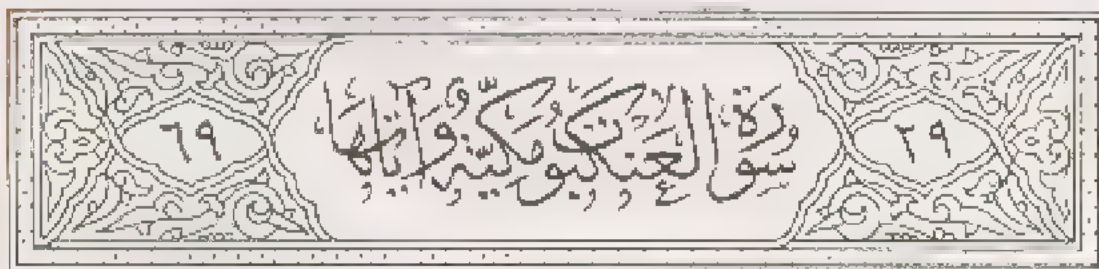 ٢٩
سُورَةُ العَنكَبُوتِ مَكِّيَّة وَآيَاتُهَا
٦٩